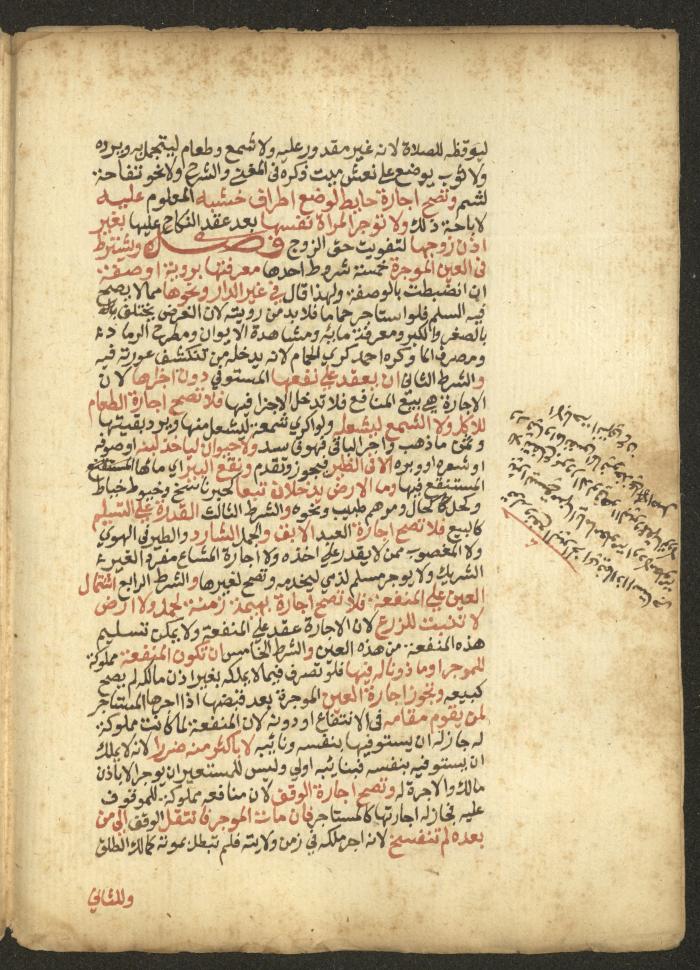 ليوقظه للصلاة لانه غير مقدور عليه ولا شمع وطعام ليتجمل به ويرده
ولا ثوب يوضع على نعش ميت ذكره في المغني والشرح ولا نحو تفاحة
لشم وتصح اجارة حايط لوضع اطراف خشبه المعلوم عليه
لاباحة ذلك ولا توجر المراة نفسها بعد عقد النكاح عليها بغير
اذن زوجها لتفويت حق الزوج فصل ويشترط
في العين الموجرة خمسة شروط احدها معرفتها بروية او صفة
ان انضبطت بالوصف ولهذا قال في غير الدار ونحوها مما لا يصح
فيه السلم فلو استاجر حماما فلا بد من رويته لان الغرض يختلف
بالصغر والكبر ومعرفة مايه ومشاهدة الايوان ومطرح الرماد
ومصرف الما وكره احمد كري الحمام لانه يدخله من تنكشف عورته فيه
والشرط الثاني ان يعقد على نفعها المستوفي دون اجزاها لان
الاجارة هي بيع المنافع فلا تدخل الاجزا فيها فلا تصح اجارة الطعام
للاكل ولا الشمع ليشعله ولو اكري شمعة ليشعل منها ويرد بقيتها
وثمن ما ذهب واجر الباقي فهو فاسد ولا حيوان لياخذ لبنه او صوفه
او شعره او وبره الا في الظير فيجوز وتقدم ونقع البير اي ماها المستنقع
فيها وما الارض يدخلان تبعا كحبر ناسخ وخيوط خياط
وكحل كحال ومرهم طبيب ونحوه والشرط الثالث القدرة على التسليم
كالبيع فلا تصح اجارة العبد الابق والجمل الشارد والطير في الهوي
ولا المغصوب ممن لا يقدر على اخذه ولا اجارة المشاع مفردا لغير
الشريك ولا يوجر مسلم لذمي ليخدمه وتصح لغيرها والشرط الرابع اشتمال
العين على المنفعة فلا تصح اجارة بهيمة زمنة لحمل ولا ارض
لا تنبت للزرع لان الاجارة عقد على المنفعة ولا يمكن تسليم
هذه المنفعة من هذه العين والشرط الخامس ان تكون المنفعة مملوكة
للموجر او ماذونا له فيها فلو تصرف فيما لا يملكه بغير اذن مالكه لم يصح
كبيعه وتجوز اجارة العين الموجرة بعد قبضها اذا اجرها المستاجر
لمن يقوم مقامه في الانتفاع او دونه لان المنفعة لما كانت مملوكة
له جاز له ان يستوفيها بنفسه ونائبه لا باكثر منه ضررا لانه لا يملك
ان يستوفيه بنفسه فبنائبه اولي وليس للمستعير ان يوجر الا باذن
مالك والاجرة له وتصح اجارة الوقف لان منافعه مملوكة للموقوف
عليه فجاز له اجارتها كالمستاجر فان مات الموجر فانتقل الوقف الي من
بعده لم تنفسخ لانه اجر ملكه في زمن ولايته فلم تبطل بموته كمالك الطلق
وللثاني